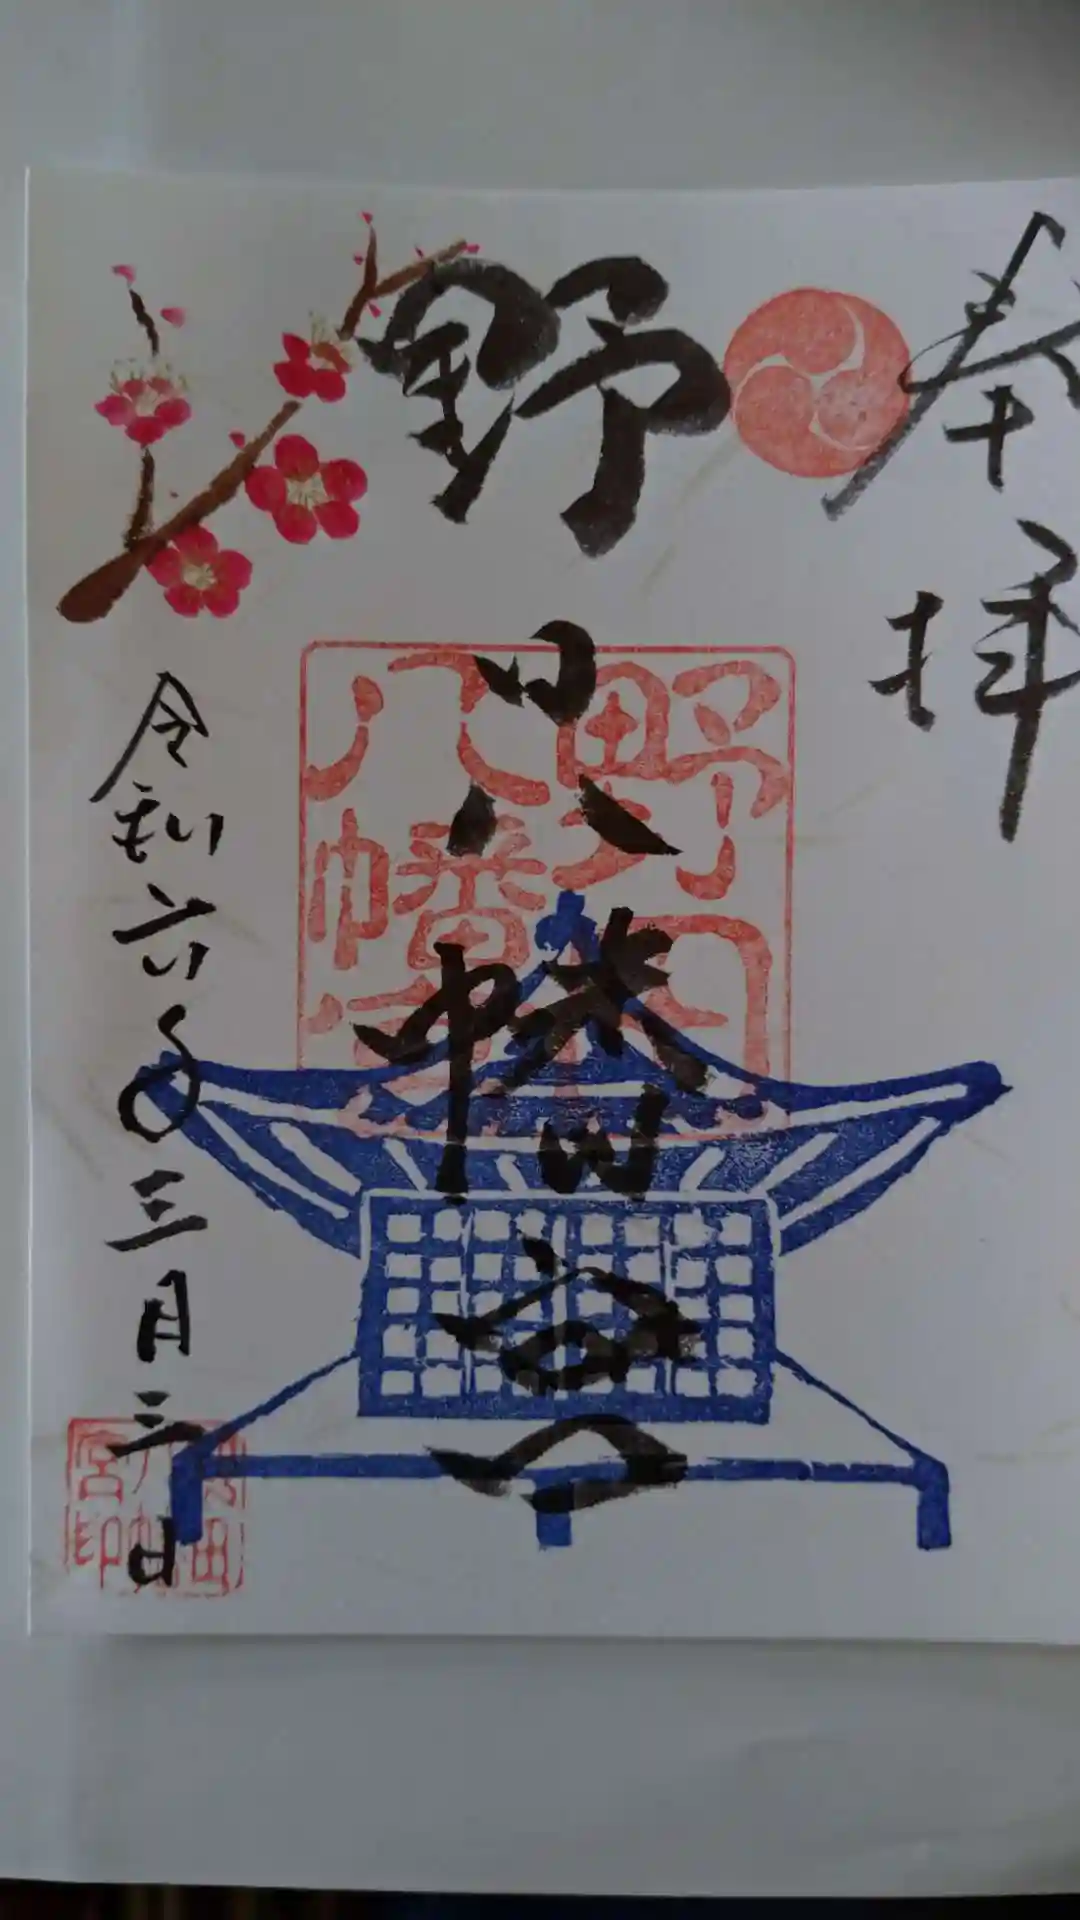 奉拝
野田八幡宮
令和六年三月三日
野田
八幡宮
野田
八幡
宮印